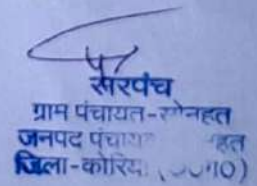 सरपंच
ग्राम पंचायत-सोनहत
जनपद पंचायत
जिला-कोरिया